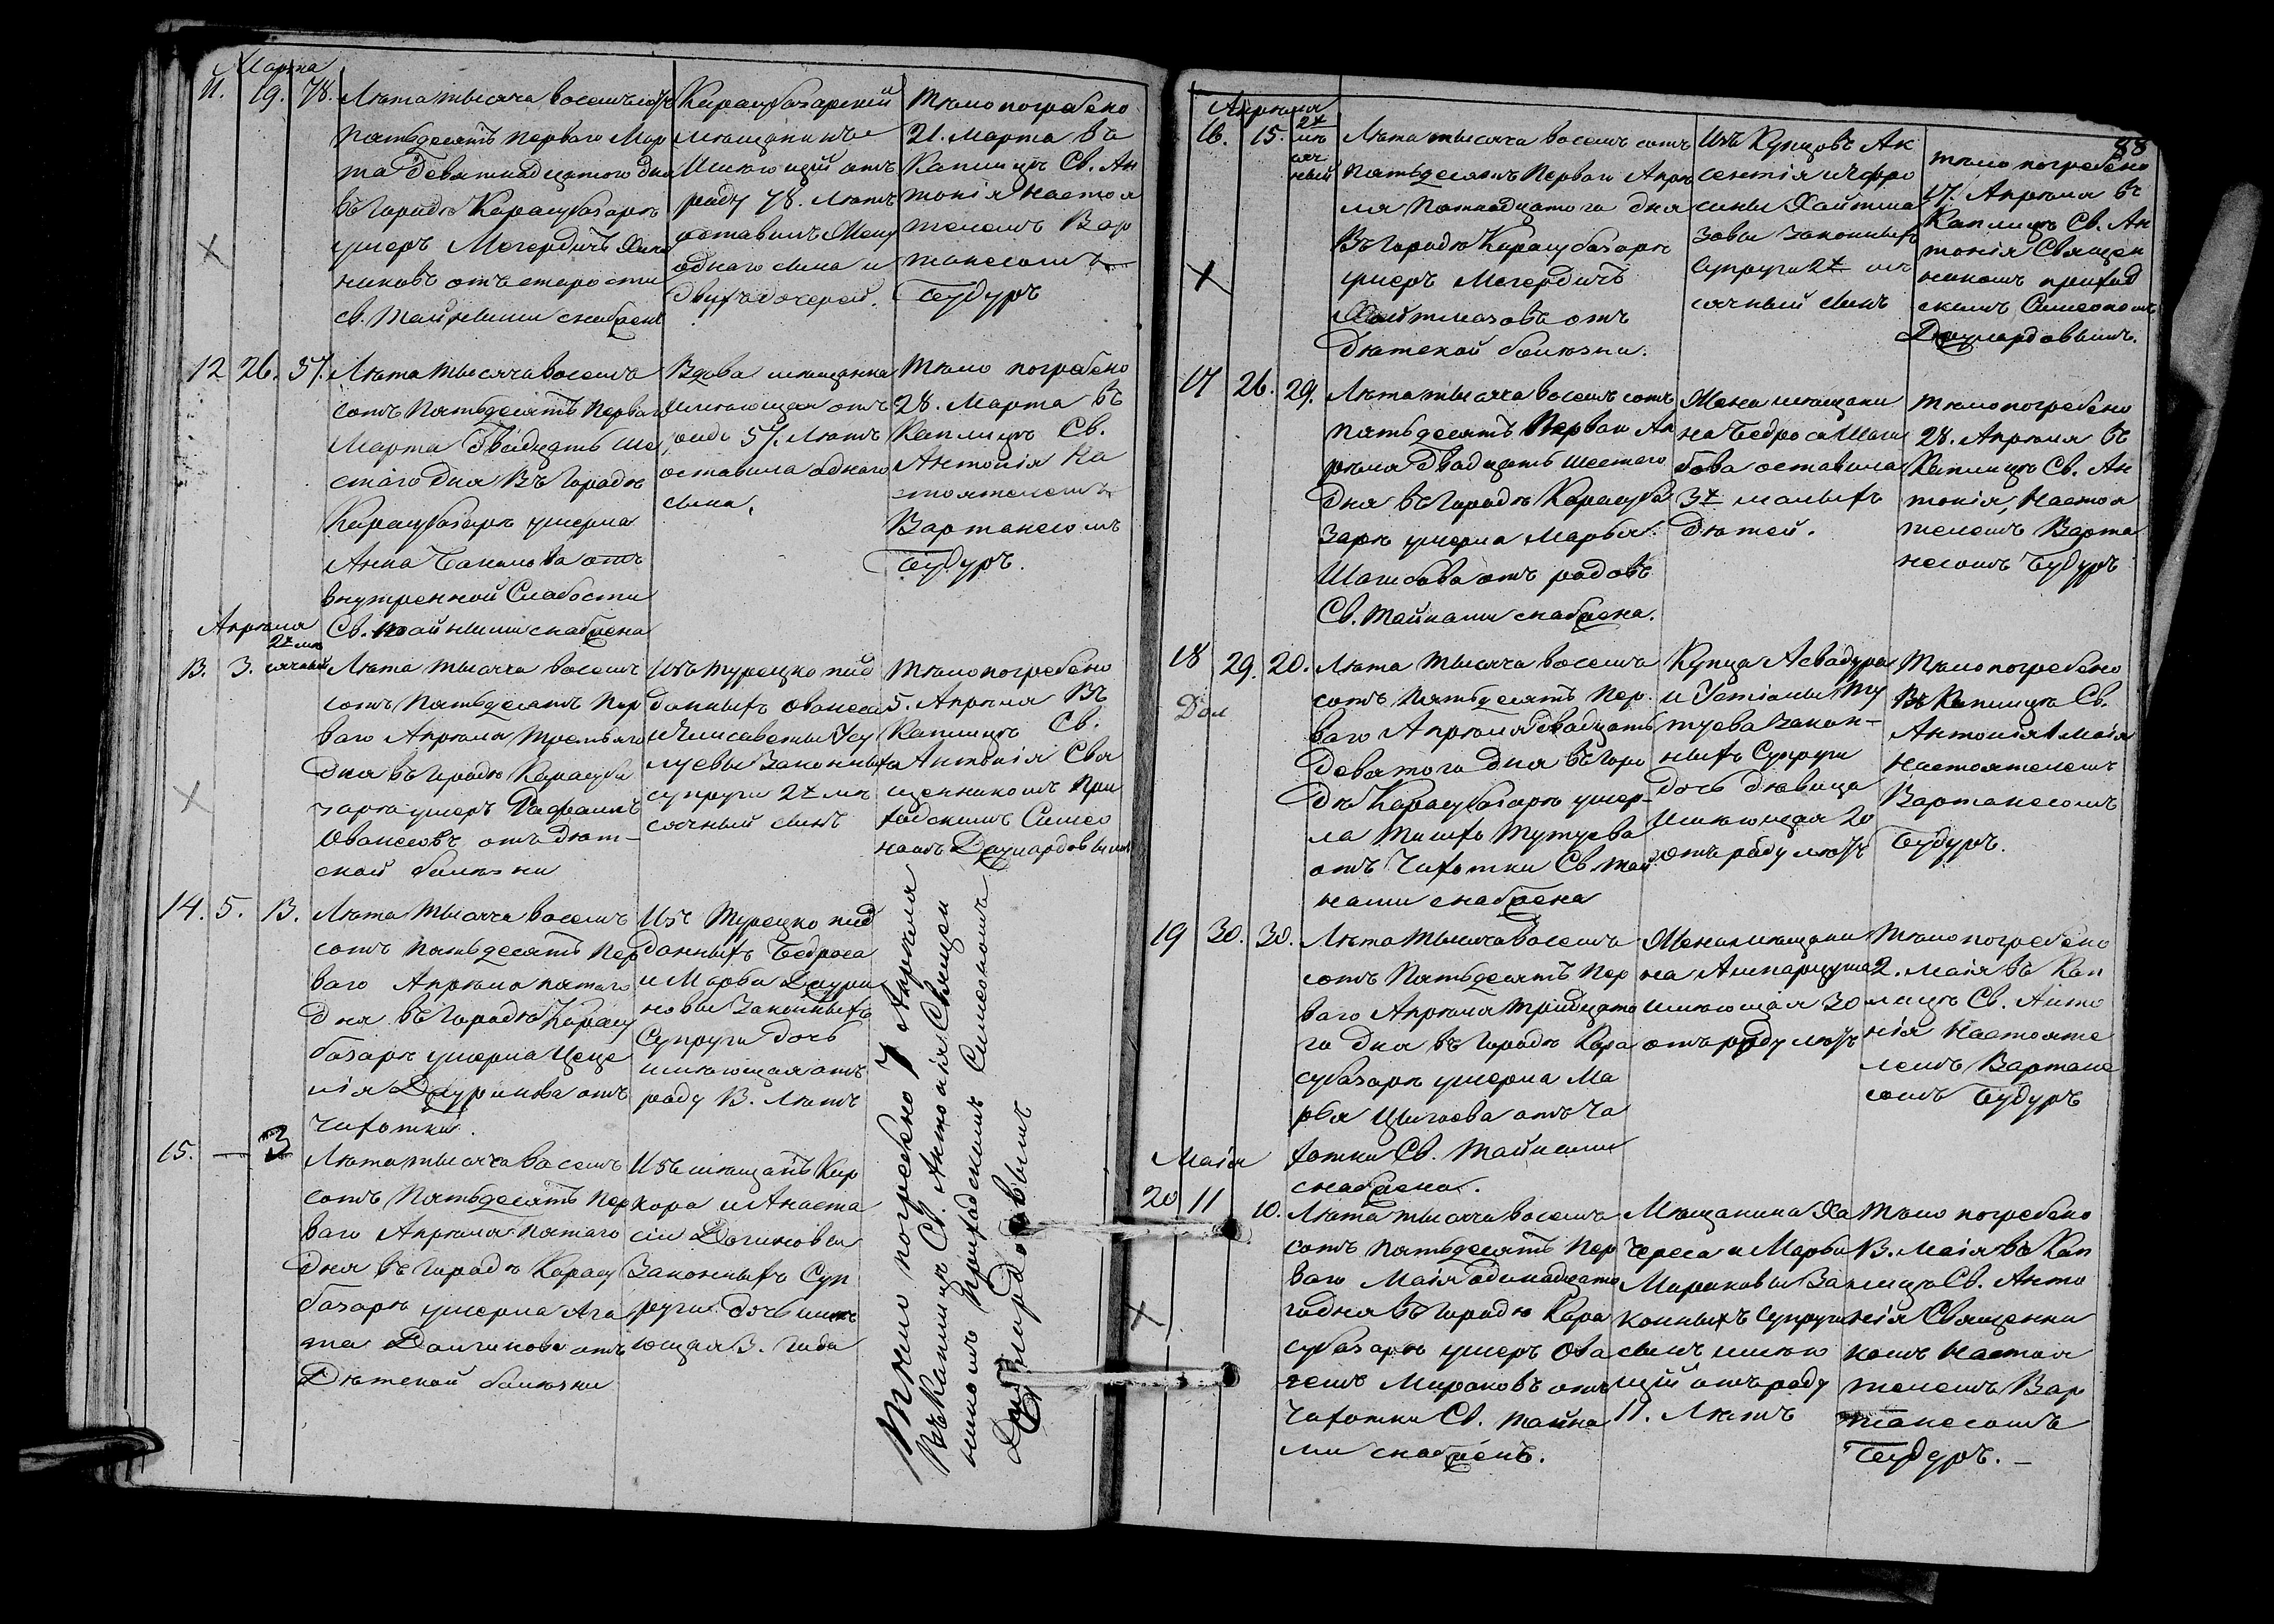 Марта
11. 19. 78.
Лѣта тысяча восемьсотъ
пятьдесятъ перваго Мар
та девятнадцатого дня
въ городѣ Карасубазарѣ
умеръ Мегердичъ
никовъ отъ старости
св. Тайнами снабденъ
Карасубазарскій
мѣщанинъ
имѣющій отъ
роду 78. лѣтъ
оставилъ жену
одного сына и
двухъ дочерей.
Тѣло погребено
21. Марта въ
Каплицѣ Св. Ан
тонія настоя
телемъ Вар
танесомъ
Будуръ
12 26. 57.
Лѣта тысяча восемь
сотъ пятьдесятъ перваго
Марта двадцать ше
стаго дня въ городѣ
Карасубазарѣ умерла
Анна отъ
внутренной слабости
Св. тайнами снабдена
Вдова мѣщанка
имѣющая отъ
роду 57. лѣтъ
оставила одного
сына.
Тѣло погребено
28. Марта въ
Каплицѣ Св.
Антонія на
стоятелемъ
Вартанесомъ
Будуръ.
Апрѣля
13. 3. 2х мѣ
сячный
Лѣта тысяча восемь
сотъ пятьдесятъ пер
ваго Апрѣля третьяго
дня въ городѣ Карасуба
зарѣ умеръ Рафаилъ
Овансовъ отъ дѣт-
ской болѣзни
Изъ турецко под
данныхъ Ованеса
и Елисаветы
законныхъ
супруги 2х мѣ
сячный сынъ
Тѣло погребено
5. Апрѣля въ
Каплицѣ Св.
Антонія Свя
щенникомъ при
ходскимъ Симео
номъ
14. 5. 13.
Лѣта тысяча восемь
сотъ пятьдесятъ пер
ваго Апрѣля пятаго
дня въ городѣ Карасу
базарѣ умерла Цеце
лія отъ
чахотки.
Изъ турецко под
данныхъ Бедроса
и Марьи
законныхъ
супруги дочь
имѣющая отъ
роду 13. лѣтъ
15. — 3
Лѣта тысяча восемь
сотъ пятьдесятъ пер
ваго Апрѣля пятаго
дня въ городѣ Карасу
базарѣ умерла Ага
та отъ
дѣтской болѣзни
Изъ мѣщанъ Кир
кора и Анаста
сіи
законныхъ суп
руги дочь имѣ
ющая 3. года
Тѣло погребено 7 Апрѣля
въ Каплицѣ Св. Антонія Священ
никомъ приходскимъ Симеономъ
88
Апрѣля
16. 15. 2х
мѣ
сяч
ный
Лѣта тысяча восемь сотъ
пятьдесятъ перваго Апрѣ
ля пятнадцатого дня
въ городѣ Карасубазарѣ
умеръ Мегердичъ
Хайтмазовъ отъ
дѣтской болѣзни.
Изъ купцовъ Ак
сентія и Ефро
сины Хайтма
зовы законныхъ
супруги 2х мѣ
сячный сынъ
тѣло погребено
17. Апрѣля въ
Каплицѣ Св. Ан
тонія Священ
никомъ приход
скимъ Симеономъ
17 26. 29.
Лѣта тысяча восемь сотъ
пятьдесятъ перваго Ап
рѣля двадцать шестого
дня въ городѣ Карасуба
зарѣ умерла Марья
отъ родовъ
Св. Тайнами снабдена.
Жена мѣщани
на Бедроса
оставила
3х малыхъ
дѣтей.
тѣло погребено
28. Апрѣля въ
Каплицѣ Св. Ан
тонія, настоя
телемъ Варта
несомъ Будуръ
18 29. 20.
Лѣта тысяча восемь
сотъ пятьдесятъ пер
ваго Апрѣля двадцать
девятого дня въ горо
дѣ Карасубазарѣ умер-
ла Тутуева
отъ чахотки Св. тай
нами снабдена
Купца Асвадура
и Ту
туева закон-
ныхъ супруги
дочь дѣвица
имѣющая 20
отъ роду лѣтъ
Тѣло погребено
въ Каплицѣ Св.
Антонія 1 Маія
настоятелемъ
Вартанесомъ
Будуръ.
19 30. 30.
Лѣта тысяча восемь
сотъ пятьдесятъ пер
ваго Апрѣля тридцато
го дня въ городѣ Кара
субазарѣ умерла Ма
рья отъ ча
хотки Св. Тайнами
снабдена.
Жена мѣщани
на
имѣющая 30
отъ роду лѣтъ
Тѣло погребено
2. Маія въ Кап
лицѣ Св. Анто
нія настояте
лемъ Вартане
сомъ Будуръ
Маія
20 11 10.
Лѣта тысяча восемь
сотъ пятьдесятъ пер
ваго Маія одинадцато
го дня въ городѣ Кара
субазарѣ умеръ Ова
Мироновъ отъ
чахотки Св. тайна
ми снабденъ.
Мѣщанина Ха
череса и Марьи
Мироновы за
конныхъ супруги
сынъ имѣю
щій отъ роду
11. лѣтъ
Тѣло погребено
13. Маія въ Кап
лицѣ Св. Анто
нія Священни
комъ настоя
телемъ Вар
танесомъ
Будуръ. –